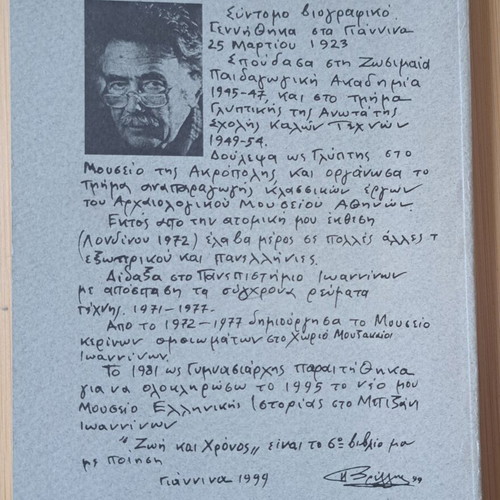 Σύντομο βιογραφικό.
Γεννήθηκα στα Γιάννινα
25 Μαρτίου 1923
Σπούδασα στη Ζωσιμαία
Παιδαγωγική Ακαδημία
1945-47, και στο τμήμα
Γλυπτικής της Ανωτάτης
Σχολής Καλών Τεχνών
1949-54.
Δούλεψα ως Γλύπτης στο
Μουσείο της Ακρόπολης και οργάνωσα το
Τμήμα αναπαραγωγής κλασσικών έργων
του Αρχαιολογικού Μουσείου Αθηνών.
Εκτός απο την ατομική μου έκθεση
(Λονδίνου 1972) έλαβα μέρος σε πολλές άλλες τ
εξωτερικού και πανελλήνιες.
Δίδαξα στο Πανεπιστήμιο Ιωαννίνων
με απόσπαση τα σύγχρονα ρεύματα
τέχνης. 1971-1977.
Απο το 1972-1977 δημιούργησα το Μουσείο
κερίνων ομοιωμάτων στο χωριό Μουζακαίοι
Ιωαννίνων.
Το 1981 ως Γυμνασιάρχης παραιτήθηκα
για να ολοκληρώσω το 1995 το νέο μου
Μουσείο Ελληνικής Ιστορίας στο Μπιζάνι
Ιωαννίνων
"Ζωή και Χρόνος" είναι το 6ο βιβλίο μου
με ποίηση
Γιάννινα 1999
Π Βρέλλης 99